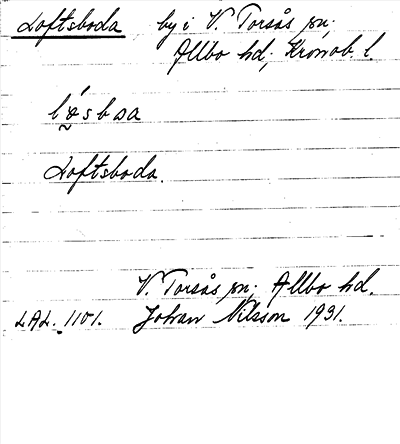 Loftsboda by i V. Torsås sn.
Allbo hd, Kronob. l.
Loftsboda.
V. Torsås sn; Allbo hd.
LAL. 1101. Johan Nilsson 1931.